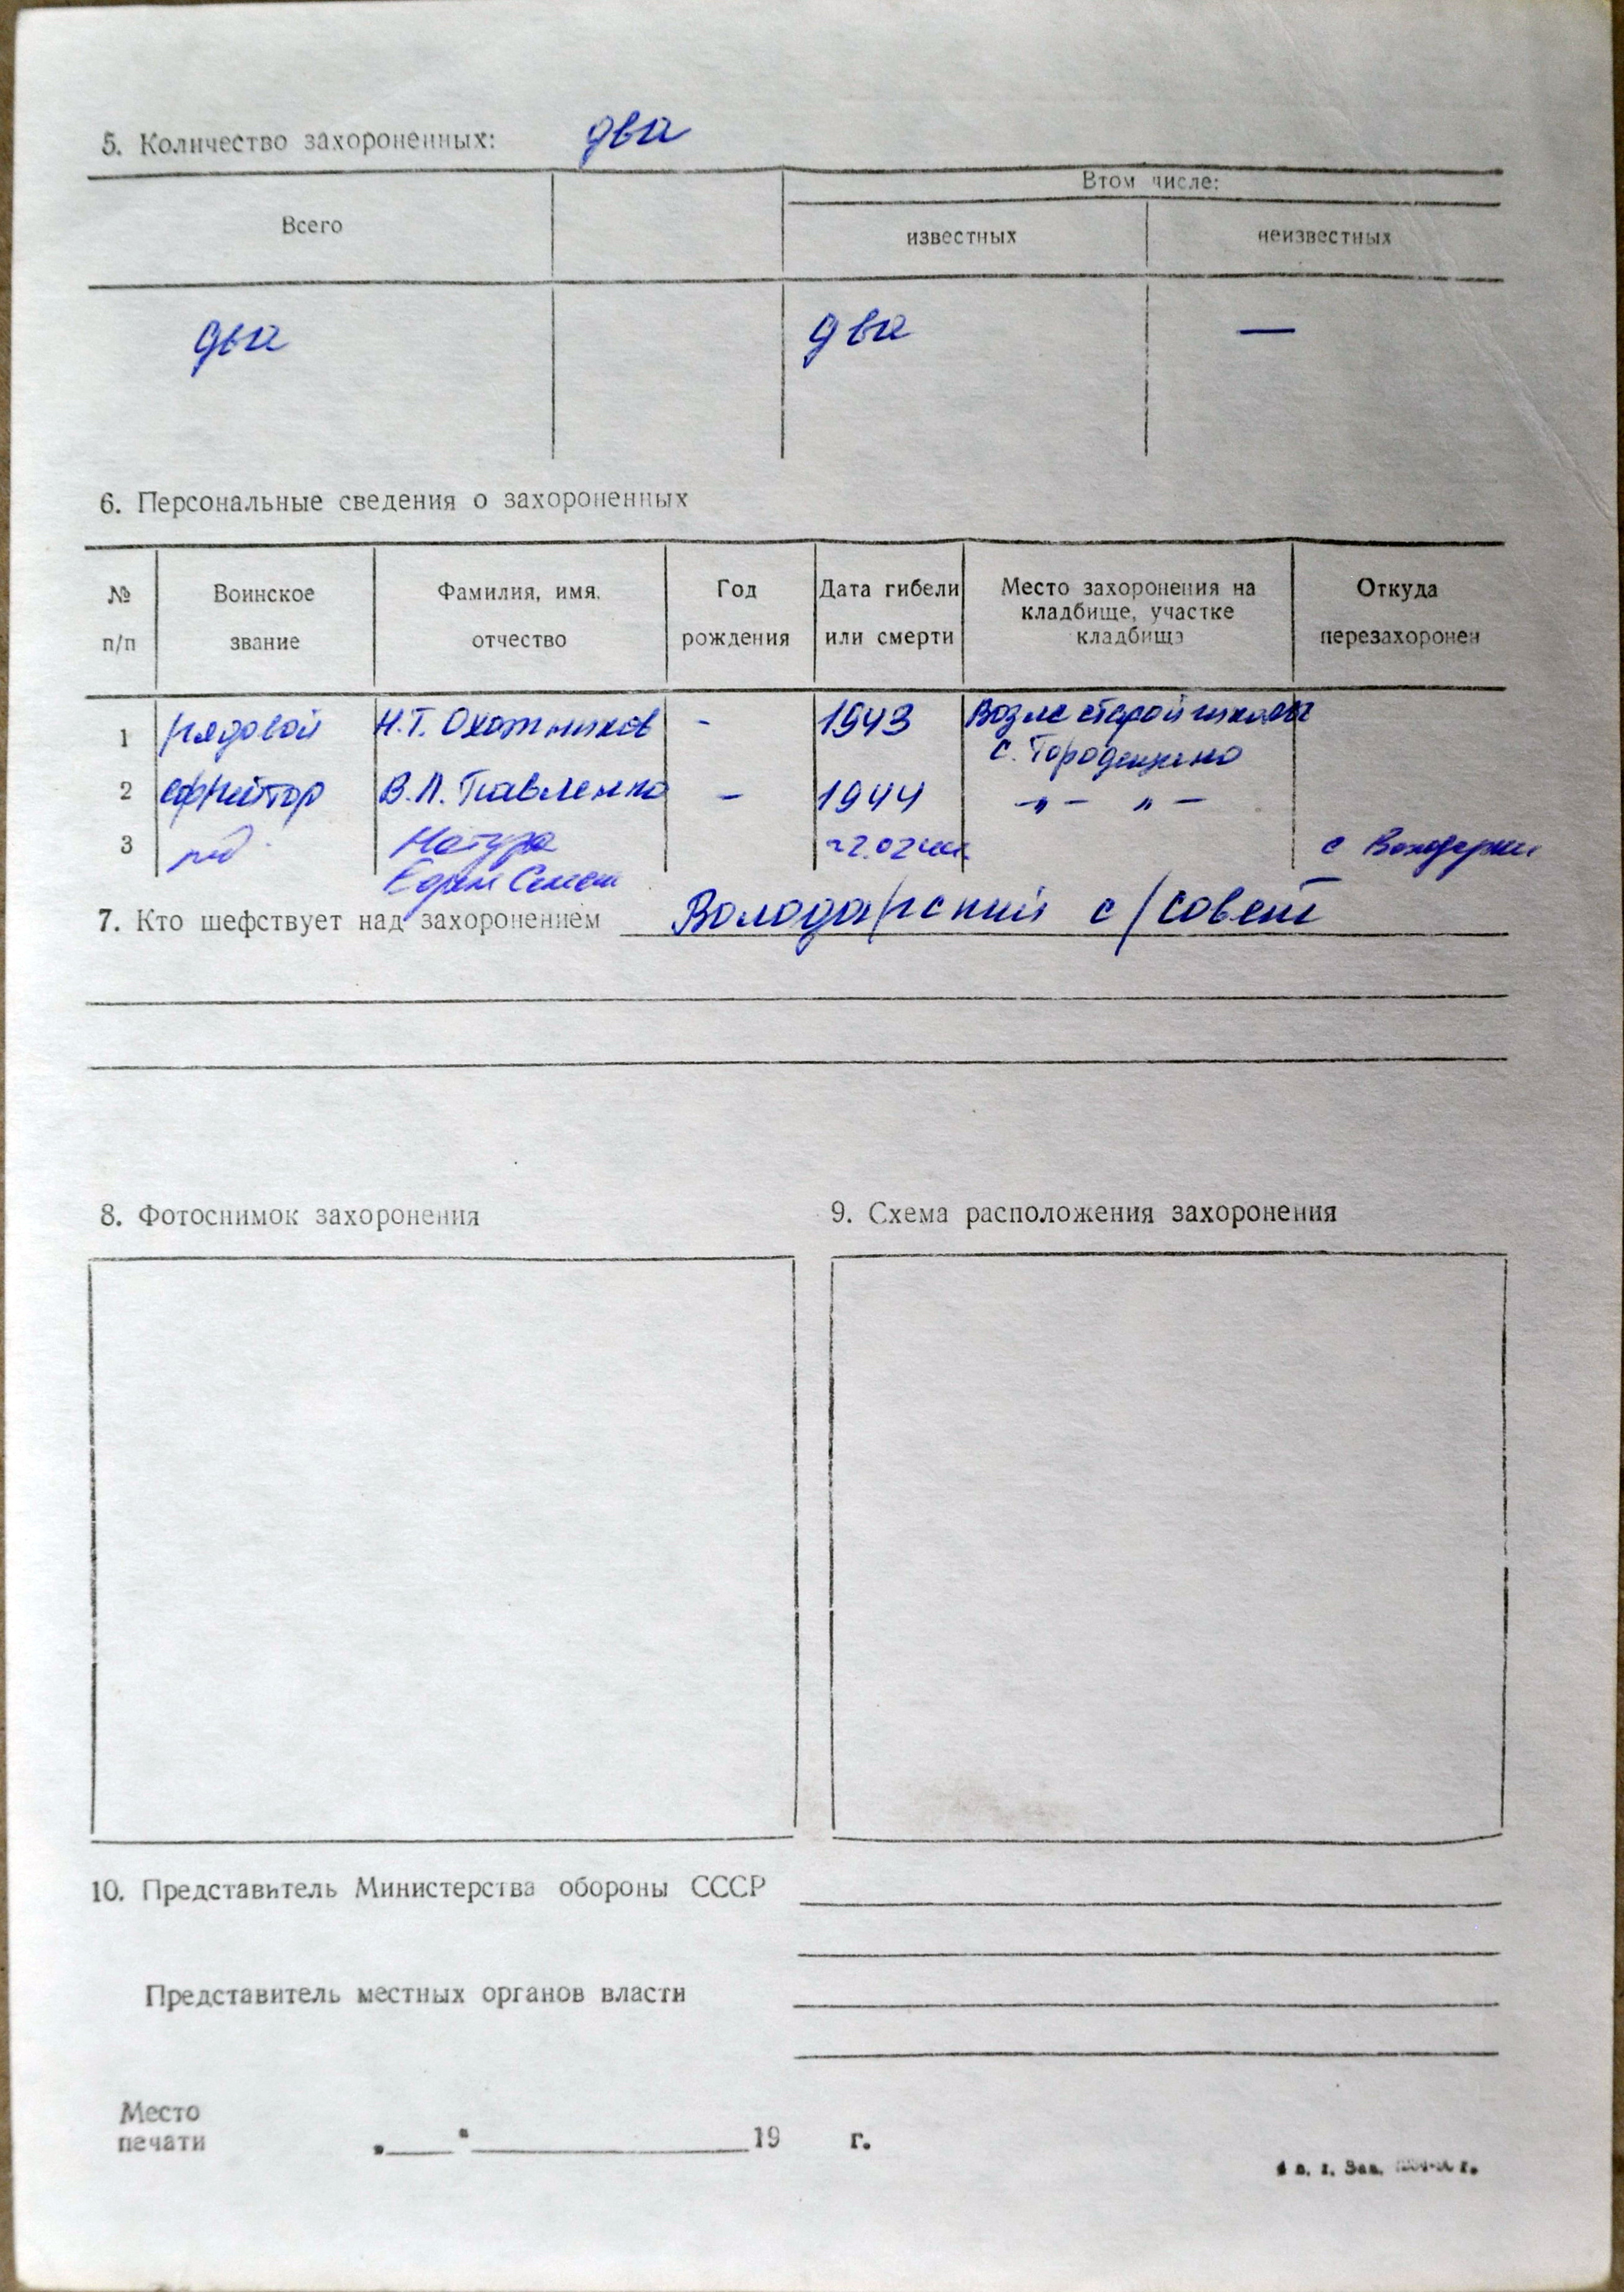 5. Количество захороненных: два
Втом числе:
Всего
известных неизвестных
два два —
6. Персональные сведения о захороненных
№ Воинское Фамилия, имя, Год Дата гибели Место захоронения на Откуда
кладбище, участке
п/п звание отчество рождения или смерти кладбища перезахоронен
1 рядовой Н.Т. Охотников - 1943 Возле старой школы
с.
2 ефрейтор В.Л. Павленко - 1944 -„- „-
3 ряд. с
7. Кто шефствует над захоронением Володарский с/совет
8. Фотоснимок захоронения 9. Схема расположения захоронения
10. Представитель Министерства обороны СССР
Представитель местных органов власти
Место
печати 19 г.
Зак.